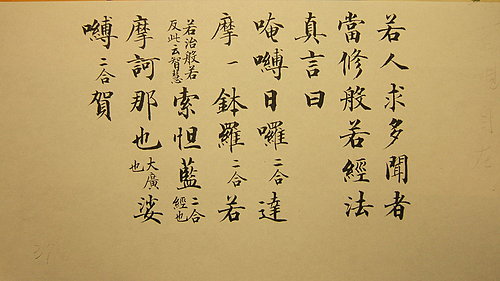 若人求多聞者
當修般若經法
真言曰
唵嚩日囉二合達
摩一鉢羅二合若
若治般若反此云智慧索怛藍二合經也
摩訶那也大廣也娑
嚩二合賀